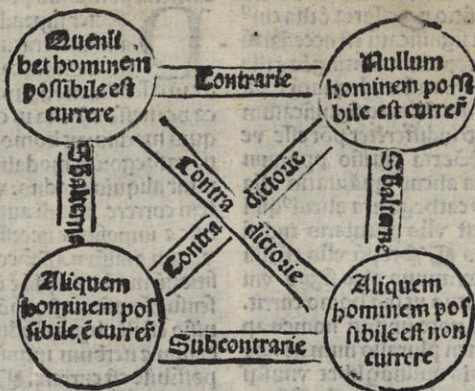 Quenli
bet hominem
possibile est
currere
Contrarie
Nullum
hominem possi
bile est currer̄
Sbalterne
Contra
dictorie
Contra
dictorie
Sbalterne
Aliquem
hominem pos
sibile ē currer̄
Subcontrarie
Aliquem
hominem pos
sibile est non
currere